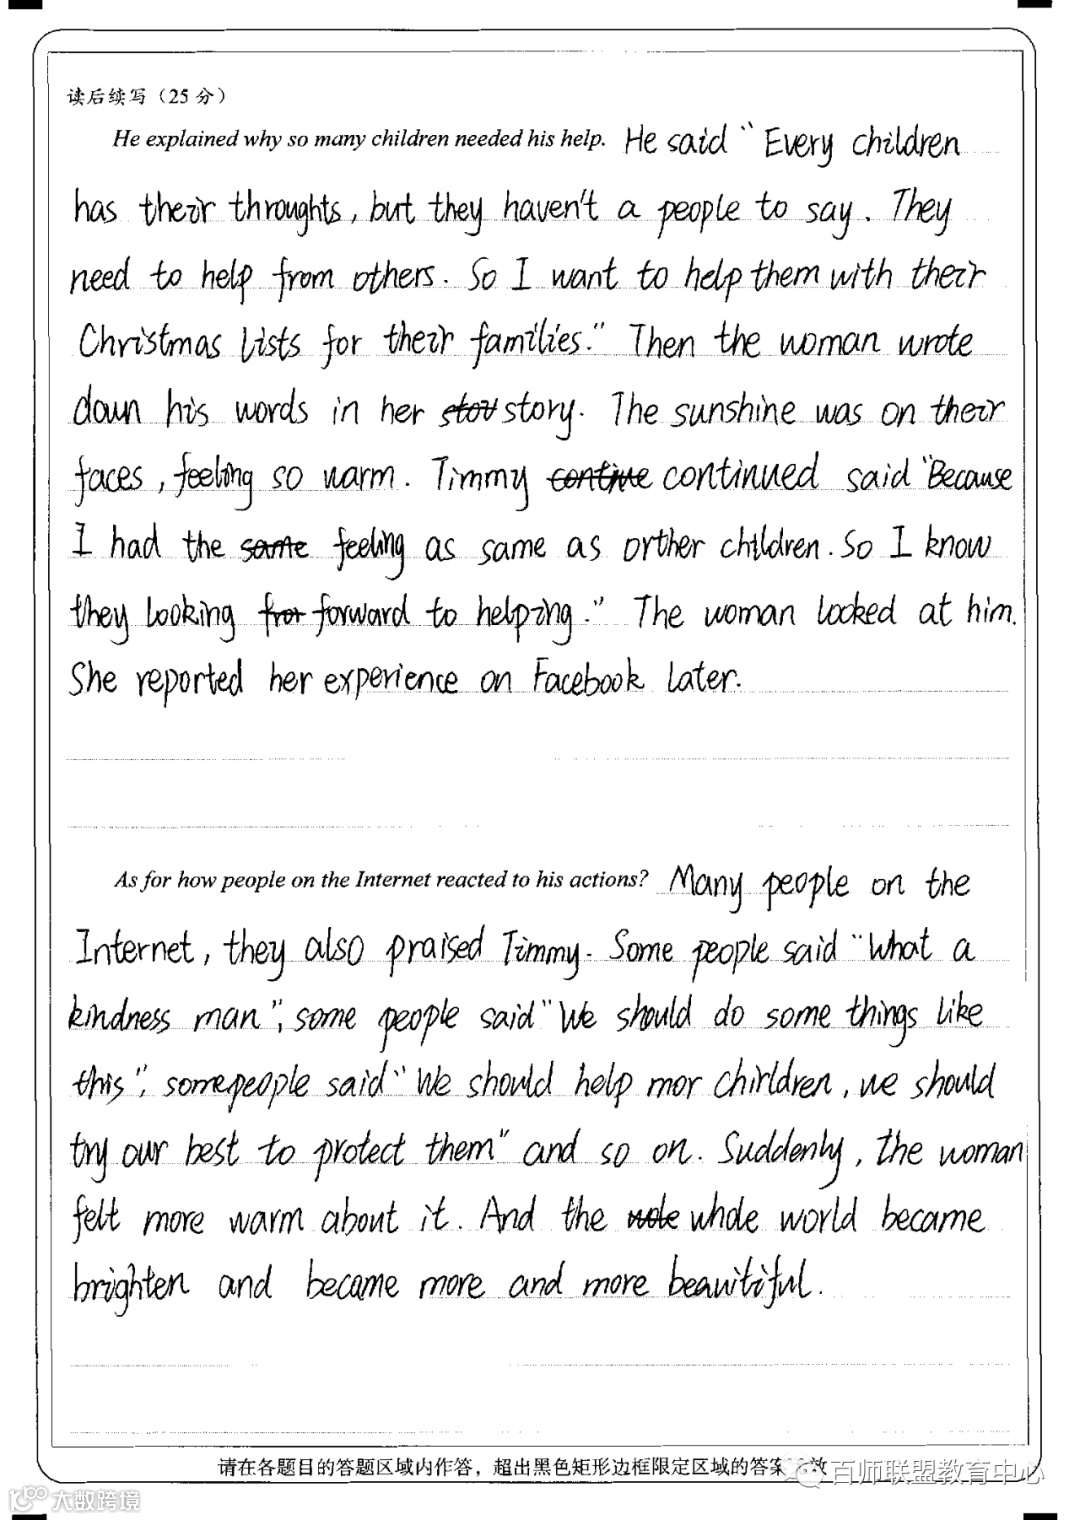 读后续写（25 分）
He explained why so many children needed his help. He said "Every children
has their throughts, but they haven't a people to say. They
need to help from others. So I want to help them with their
Christmas lists for their families." Then the woman wrote
down his words in her stov story. The sunshine was on their
faces, feeling so warm. Timmy contine continued said "Because
I had the same feeling as same as orther children. So I know
they looking fror forward to helping." The woman looked at him.
She reported her experience on Facebook later.
As for how people on the Internet reacted to his actions? Many people on the
Internet, they also praised Timmy. Some people said "What a
kindness man", some people said "We should do some things like
this", some people said "We should help mor chirldren, we should
try our best to protect them" and so on. Suddenly, the woman
felt more warm about it. And the wole whole world became
brighten and became more and more beautiful.
请在各题目的答题区域内作答，超出黑色矩形边框限定区域的答案无效
百师联盟教育中心
大数跨境